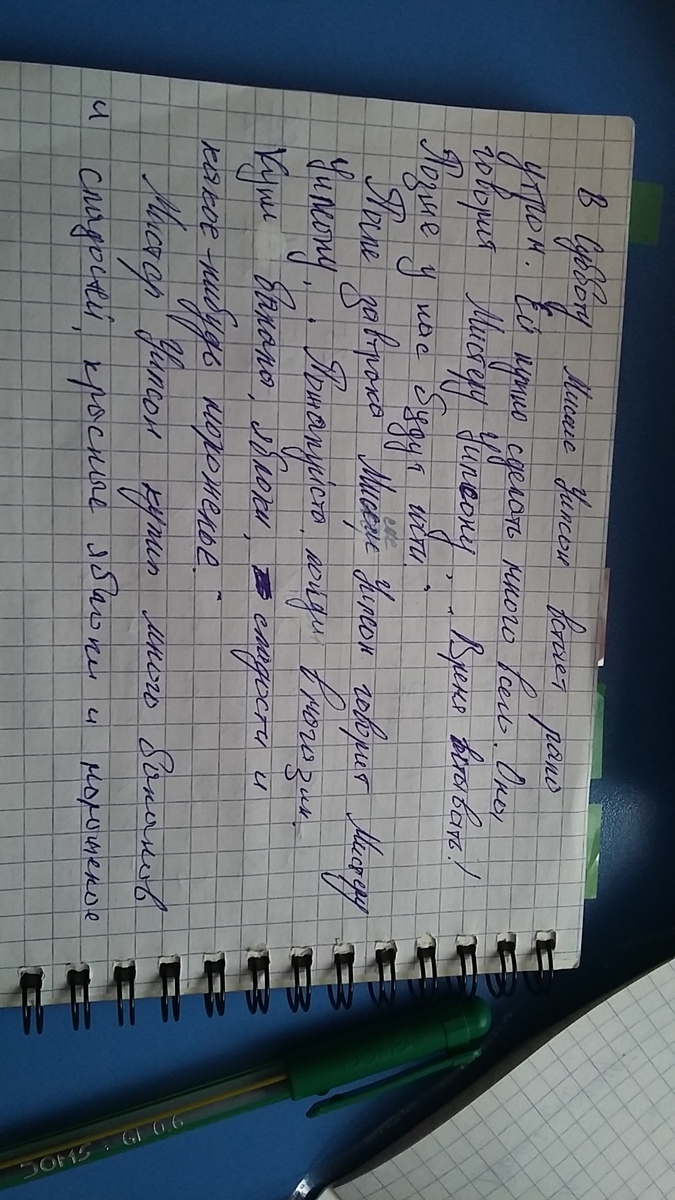 В субботу Миссис Уилсон встает рано
утром. Ей нужно сделать много всего. Она
говорит Мистеру Уилсону, „Время вставать!
Позже у нас будут гости."
После завтрака Миссис Уилсон говорит Мистеру
Уилсону, „Пожалуйста, пойди в магазин.
Купи бананы, яблоки, сладости и
какое-нибудь мороженые."
Мистер Уилсон купил много бананов
и сладостей, красные яблоки и мороженое